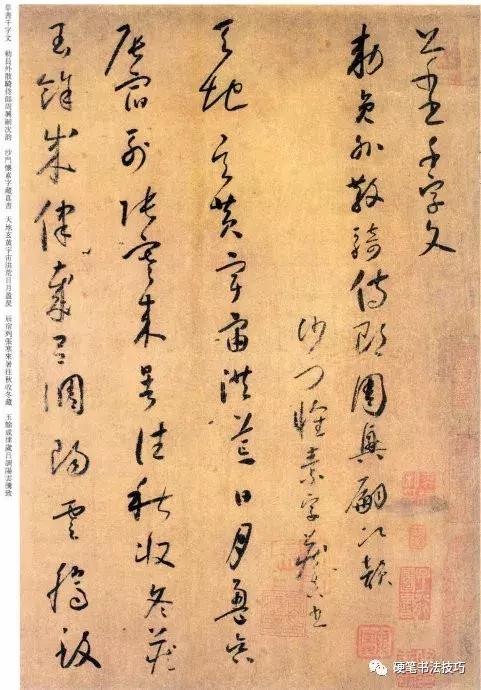 草書千字文
勅員外散騎侍郎周興嗣次韵
沙門懷素字藏真書
天地玄黃宇宙洪荒日月盈昃
辰宿列張寒來暑往秋收冬藏
餘成律歲呂調陽雲騰致
草書千字文 勅員外散騎侍郎周興嗣次韵 沙門懷素字藏真書 天地玄黃宇宙洪荒日月盈昃 辰宿列張寒來暑往秋收冬藏 玉餘成律歲呂調陽雲騰致
硬笔书法技巧